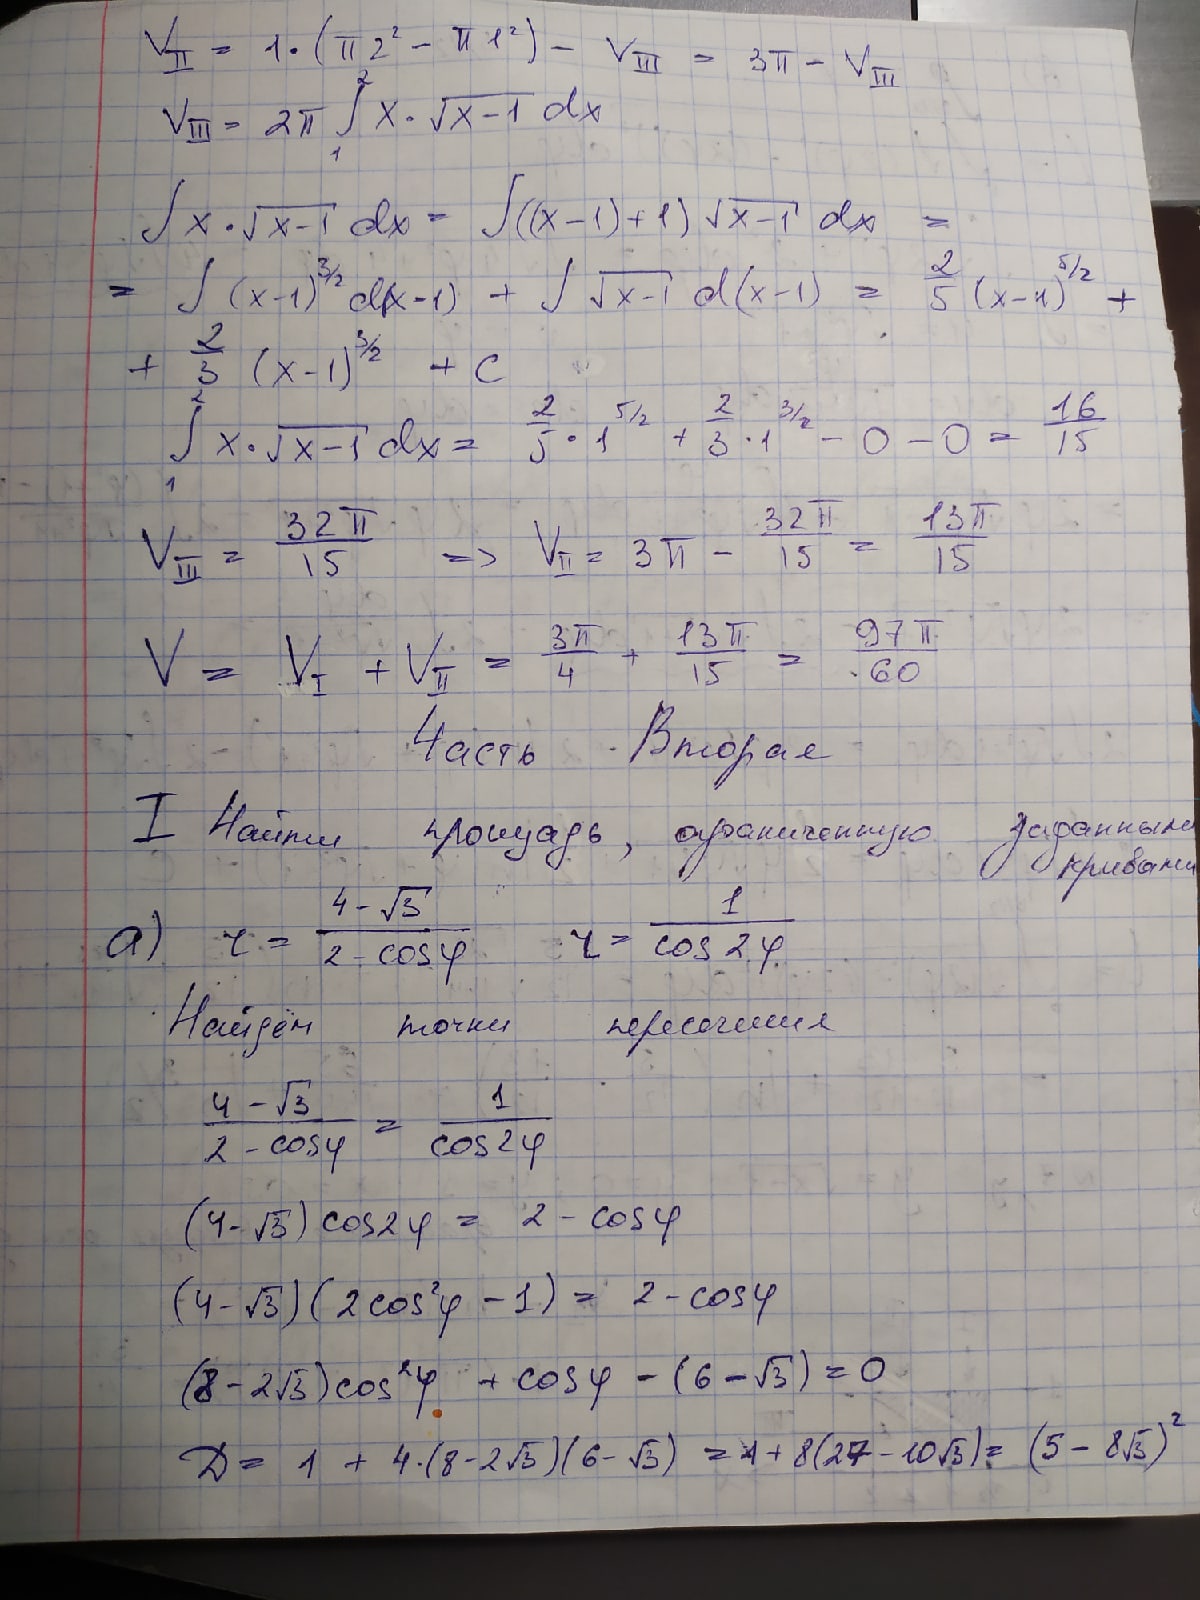 V_II = 1·(π2² − π1²) − V_III = 3π − V_III
V_III = 2π ∫₁² x·√(x−1) dx
∫ x·√(x−1) dx = ∫((x−1)+1) √(x−1) dx =
= ∫ (x−1)^(3/2) d(x−1) + ∫ √(x−1) d(x−1) = 2/5 (x−1)^(5/2) +
+ 2/3 (x−1)^(3/2) + C
∫₁² x·√(x−1) dx = 2/5·1^(5/2) + 2/3·1^(3/2) − 0 − 0 = 16/15
V_III = 32π/15 => V_II = 3π − 32π/15 = 13π/15
V = V_I + V_II = 3π/4 + 13π/15 = 97π/60
Часть Вторая
I Найти площадь, ограниченную заданными
кривыми
а) r = (4−√3)/(2−cosφ) r = 1/cos2φ
Найдём точки пересечения
(4−√3)/(2−cosφ) = 1/cos2φ
(4−√3) cos2φ = 2 − cosφ
(4−√3)(2cos²φ − 1) = 2 − cosφ
(8−2√3)cos²φ + cosφ − (6−√3) = 0
D = 1 + 4·(8−2√3)(6−√3) = 1 + 8(27−10√3) = (5−8√3)²